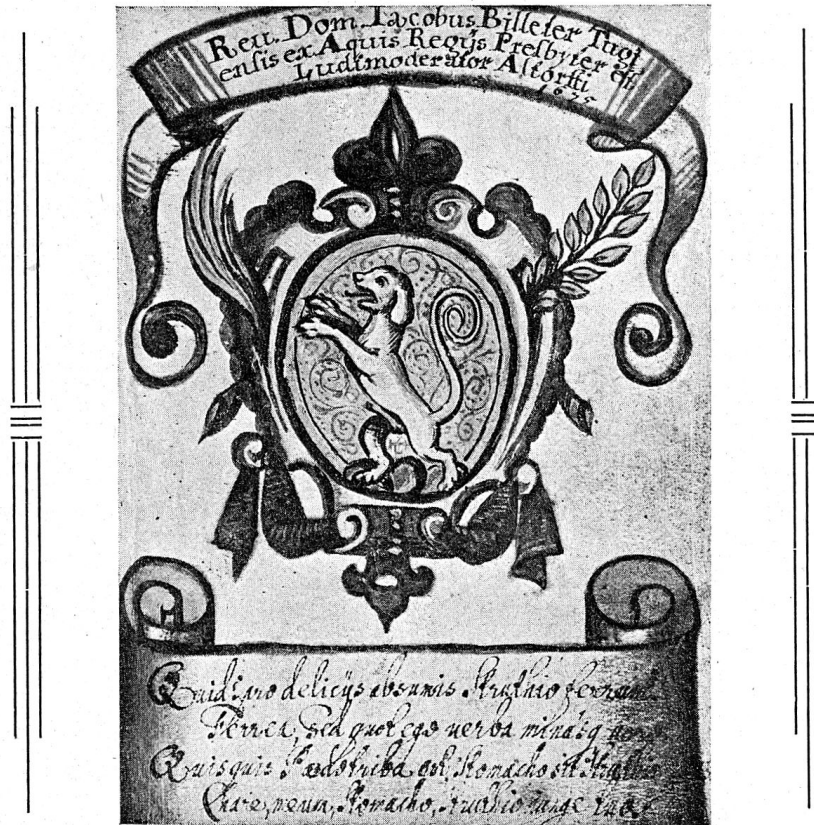 Reu. Dom. Iacobus Billeter Tugi
ensis ex Aquis Regijs Presbiter et
Ludimoderator Altorffi
1675
Quid? pro delicijs absumis Struthio ferrum?
Ferrea, sed quot ego uerba minasq
Quisquis Paedotriba est, stomacho sit
meum, stomacho, Struthio iunge tuo